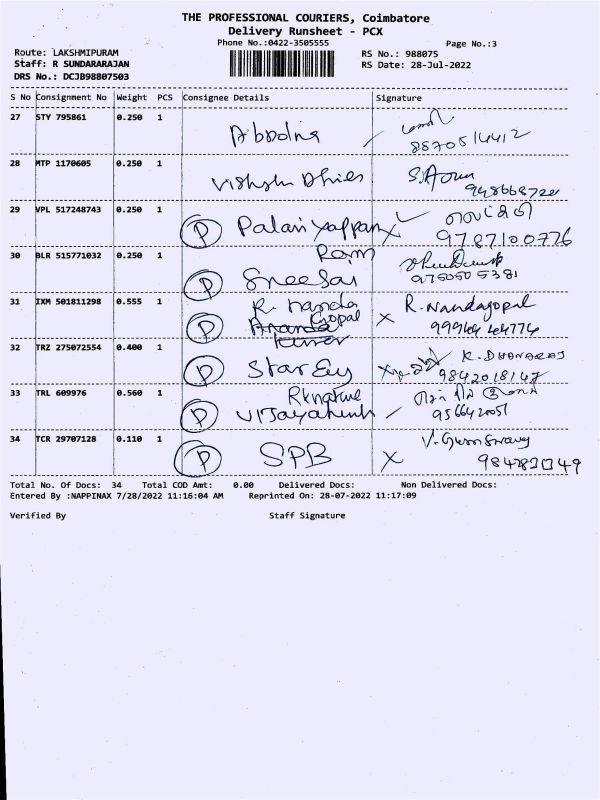 THE PROFESSIONAL COURIERS, Coimbatore
Delivery Runsheet - PCX
Phone No.:0422-3505555
Page No.:3
Route: LAKSHMIPURAM
RS No.: 988075
Staff: R SUNDARARAJAN
RS Date: 28-Jul-2022
DRS No.: DCJB98807503
S No Consignment No Weight PCS Consignee Details Signature
27 STY 795861 0.250 1
28 MTP 1170605 0.250 1
29 VPL 517248743 0.250 1 P Palaniyappan
9787100776
30 BLR 515771032 0.250 1 P Ram
Sree Sai
9750505381
31 IXM 501811298 0.555 1 P R. Nanda Gopal x R. Nandagopal
32 TRZ 275072554 0.400 1 P Star Ey K. DHANARAJ
9842018147
33 TRL 609976 0.560 1 P
34 TCR 29707128 0.110 1 P SPB x
Total No. Of Docs: 34 Total COD Amt: 0.00 Delivered Docs: Non Delivered Docs:
Entered By :NAPPINAX 7/28/2022 11:16:04 AM Reprinted On: 28-07-2022 11:17:09
Verified By Staff Signature